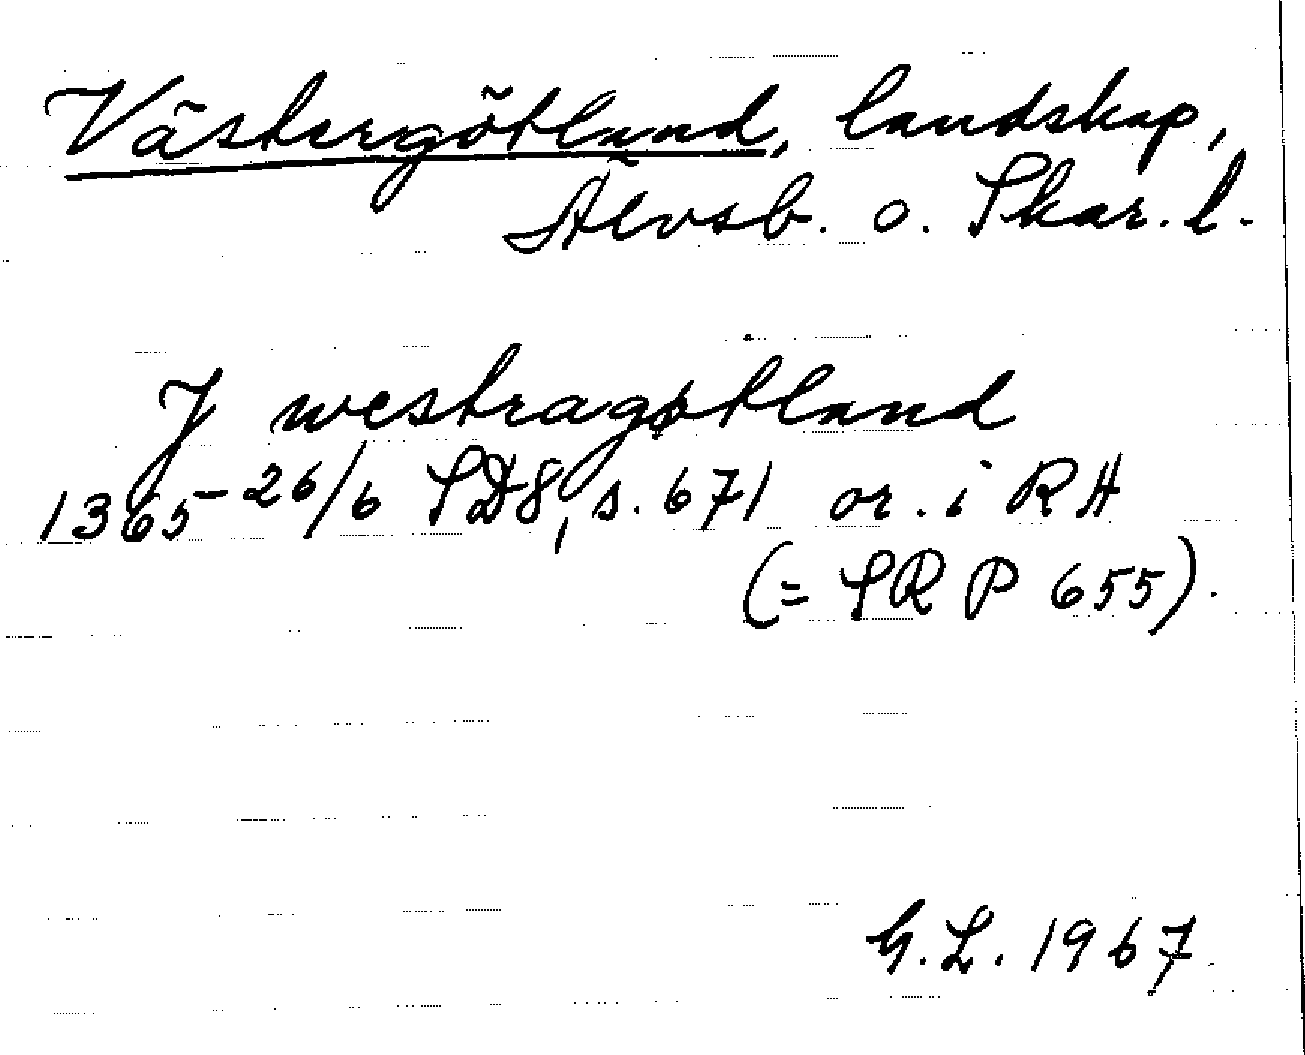 Västergötland, landskap,
Älvsb. o. Skar. l.
J westragøtland
1365 26/6 SD8, s. 671 or. i RA
(= SRP 655).
G.L. 1967